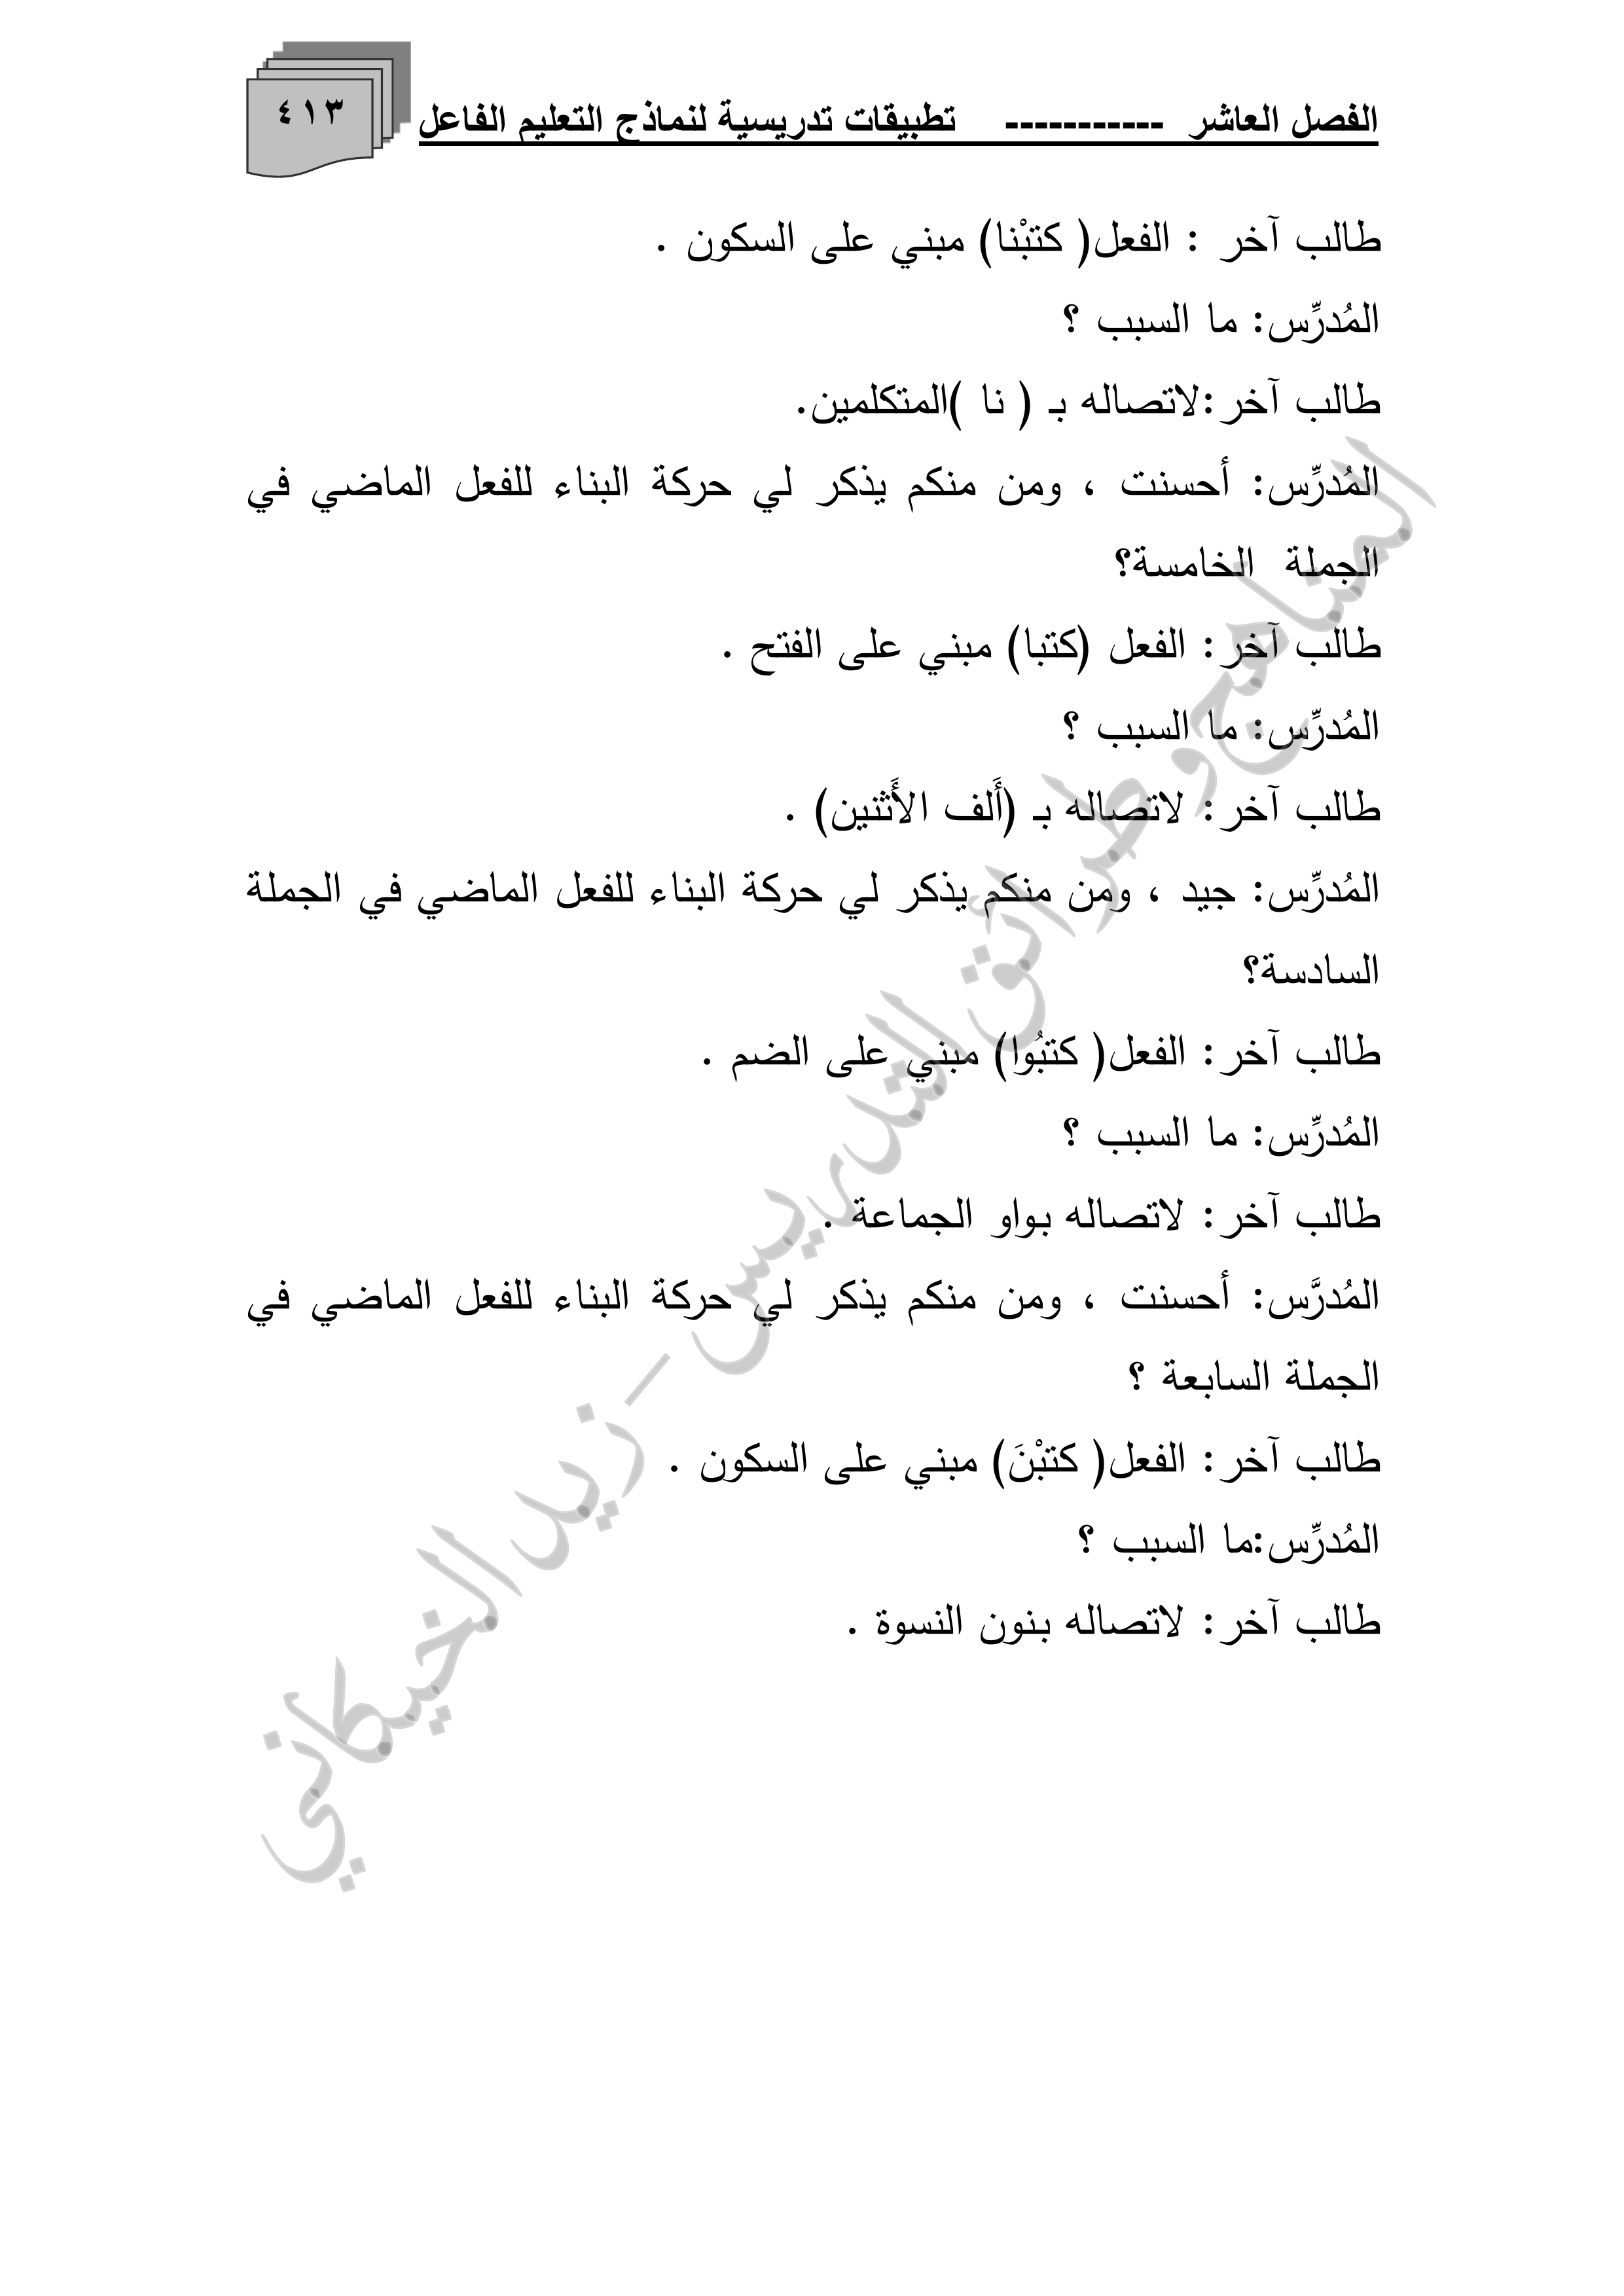 الفصل العاشر ----------- تطبيقات تدريسية لنماذج التعليم الفاعل
٤١٣
طالب آخر : الفعل( كتبْنا) مبني على السكون .
المُدرِّس: ما السبب ؟
طالب آخر:لاتصاله بـ ( نا )المتكلمين.
المُدرِّس: أحسنت ، ومن منكم يذكر لي حركة البناء للفعل الماضي في
الجملة الخامسة؟
طالب آخر: الفعل (كتبا) مبني على الفتح .
المُدرِّس: ما السبب ؟
طالب آخر: لاتصاله بـ (أَلف الأَثنين) .
المُدرِّس: جيد ، ومن منكم يذكر لي حركة البناء للفعل الماضي في الجملة
السادسة؟
طالب آخر: الفعل( كتبُوا) مبني على الضم .
المُدرِّس: ما السبب ؟
طالب آخر: لاتصاله بواو الجماعة .
المُدرَّس: أحسنت ، ومن منكم يذكر لي حركة البناء للفعل الماضي في
الجملة السابعة ؟
طالب آخر: الفعل( كتبْنَ) مبني على السكون .
المُدرِّس:ما السبب ؟
طالب آخر: لاتصاله بنون النسوة .
المناهج وطرائق التدريس - زيد الخيكاني